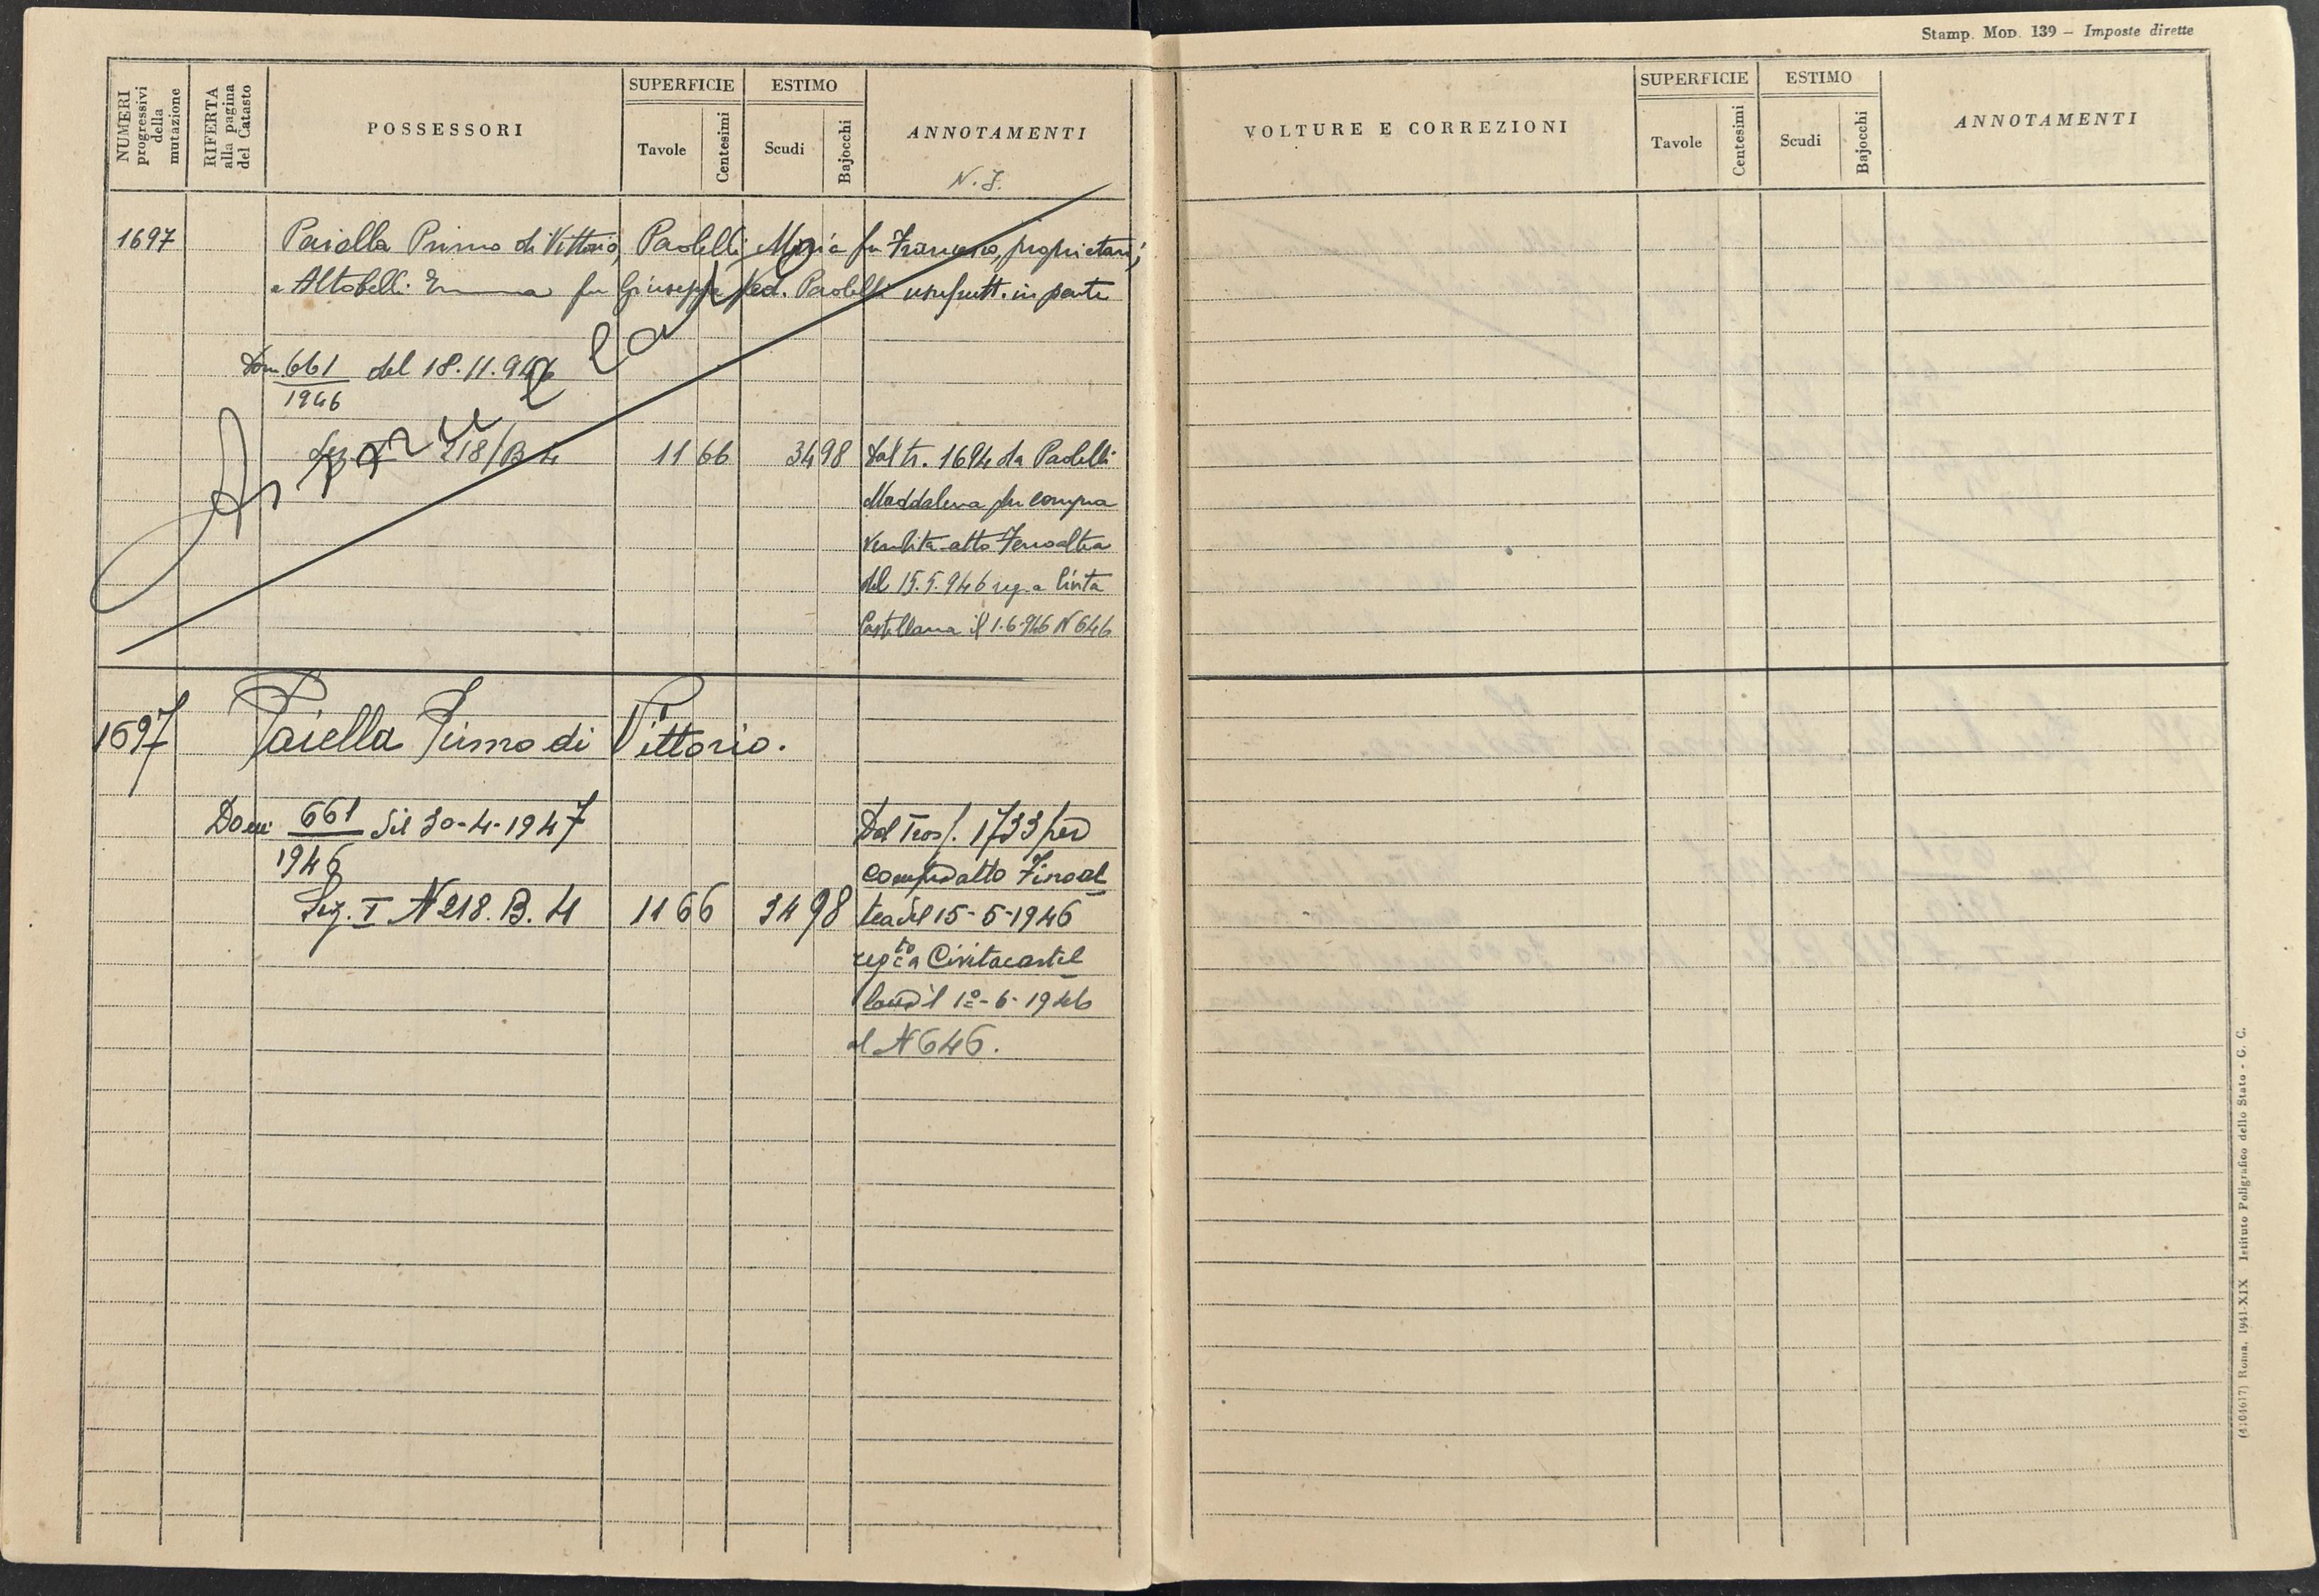 Stamp. Mod. 139 – Imposte dirette
NUMERI progressivi della mutazione
RIFERTA alla pagina del Catasto
POSSESSORI
SUPERFICIE
Tavole
Centesimi
ESTIMO
Scudi
Bajocchi
ANNOTAMENTI
VOLTURE E CORREZIONI
SUPERFICIE
Tavole
Centesimi
ESTIMO
Scudi
Bajocchi
ANNOTAMENTI
1697 Paiella Primo di Vittorio, Paolelli Maria fu Francesco, proprietari;
e Altobelli Emma fu Giuseppe Ved. Paolelli usufrutt. in parte
Dom 661 del 18.11.946
1946
Annullata
Sez. I 218/B 4 11 66 34 98 Dal tr. 1694 da Paolelli
Maddalena per compra
Vendita atto Fenoaltea
del 15.5.946 reg. a Civita
Castellana il 1.6.946 N 646
1697 Paiella Primo di Vittorio.
Dom 661 del 30-4-1947 Dal Trasf. 1733 per
1946 compra atto Finoal
Sez. I N 218. B. 4 11 66 34 98 tea del 15-5-1946
regto a Civitacastel
lana il 1º-6-1946
al N 646.
(4104617) Roma, 1941-XIX Istituto Poligrafico dello Stato - G. C.